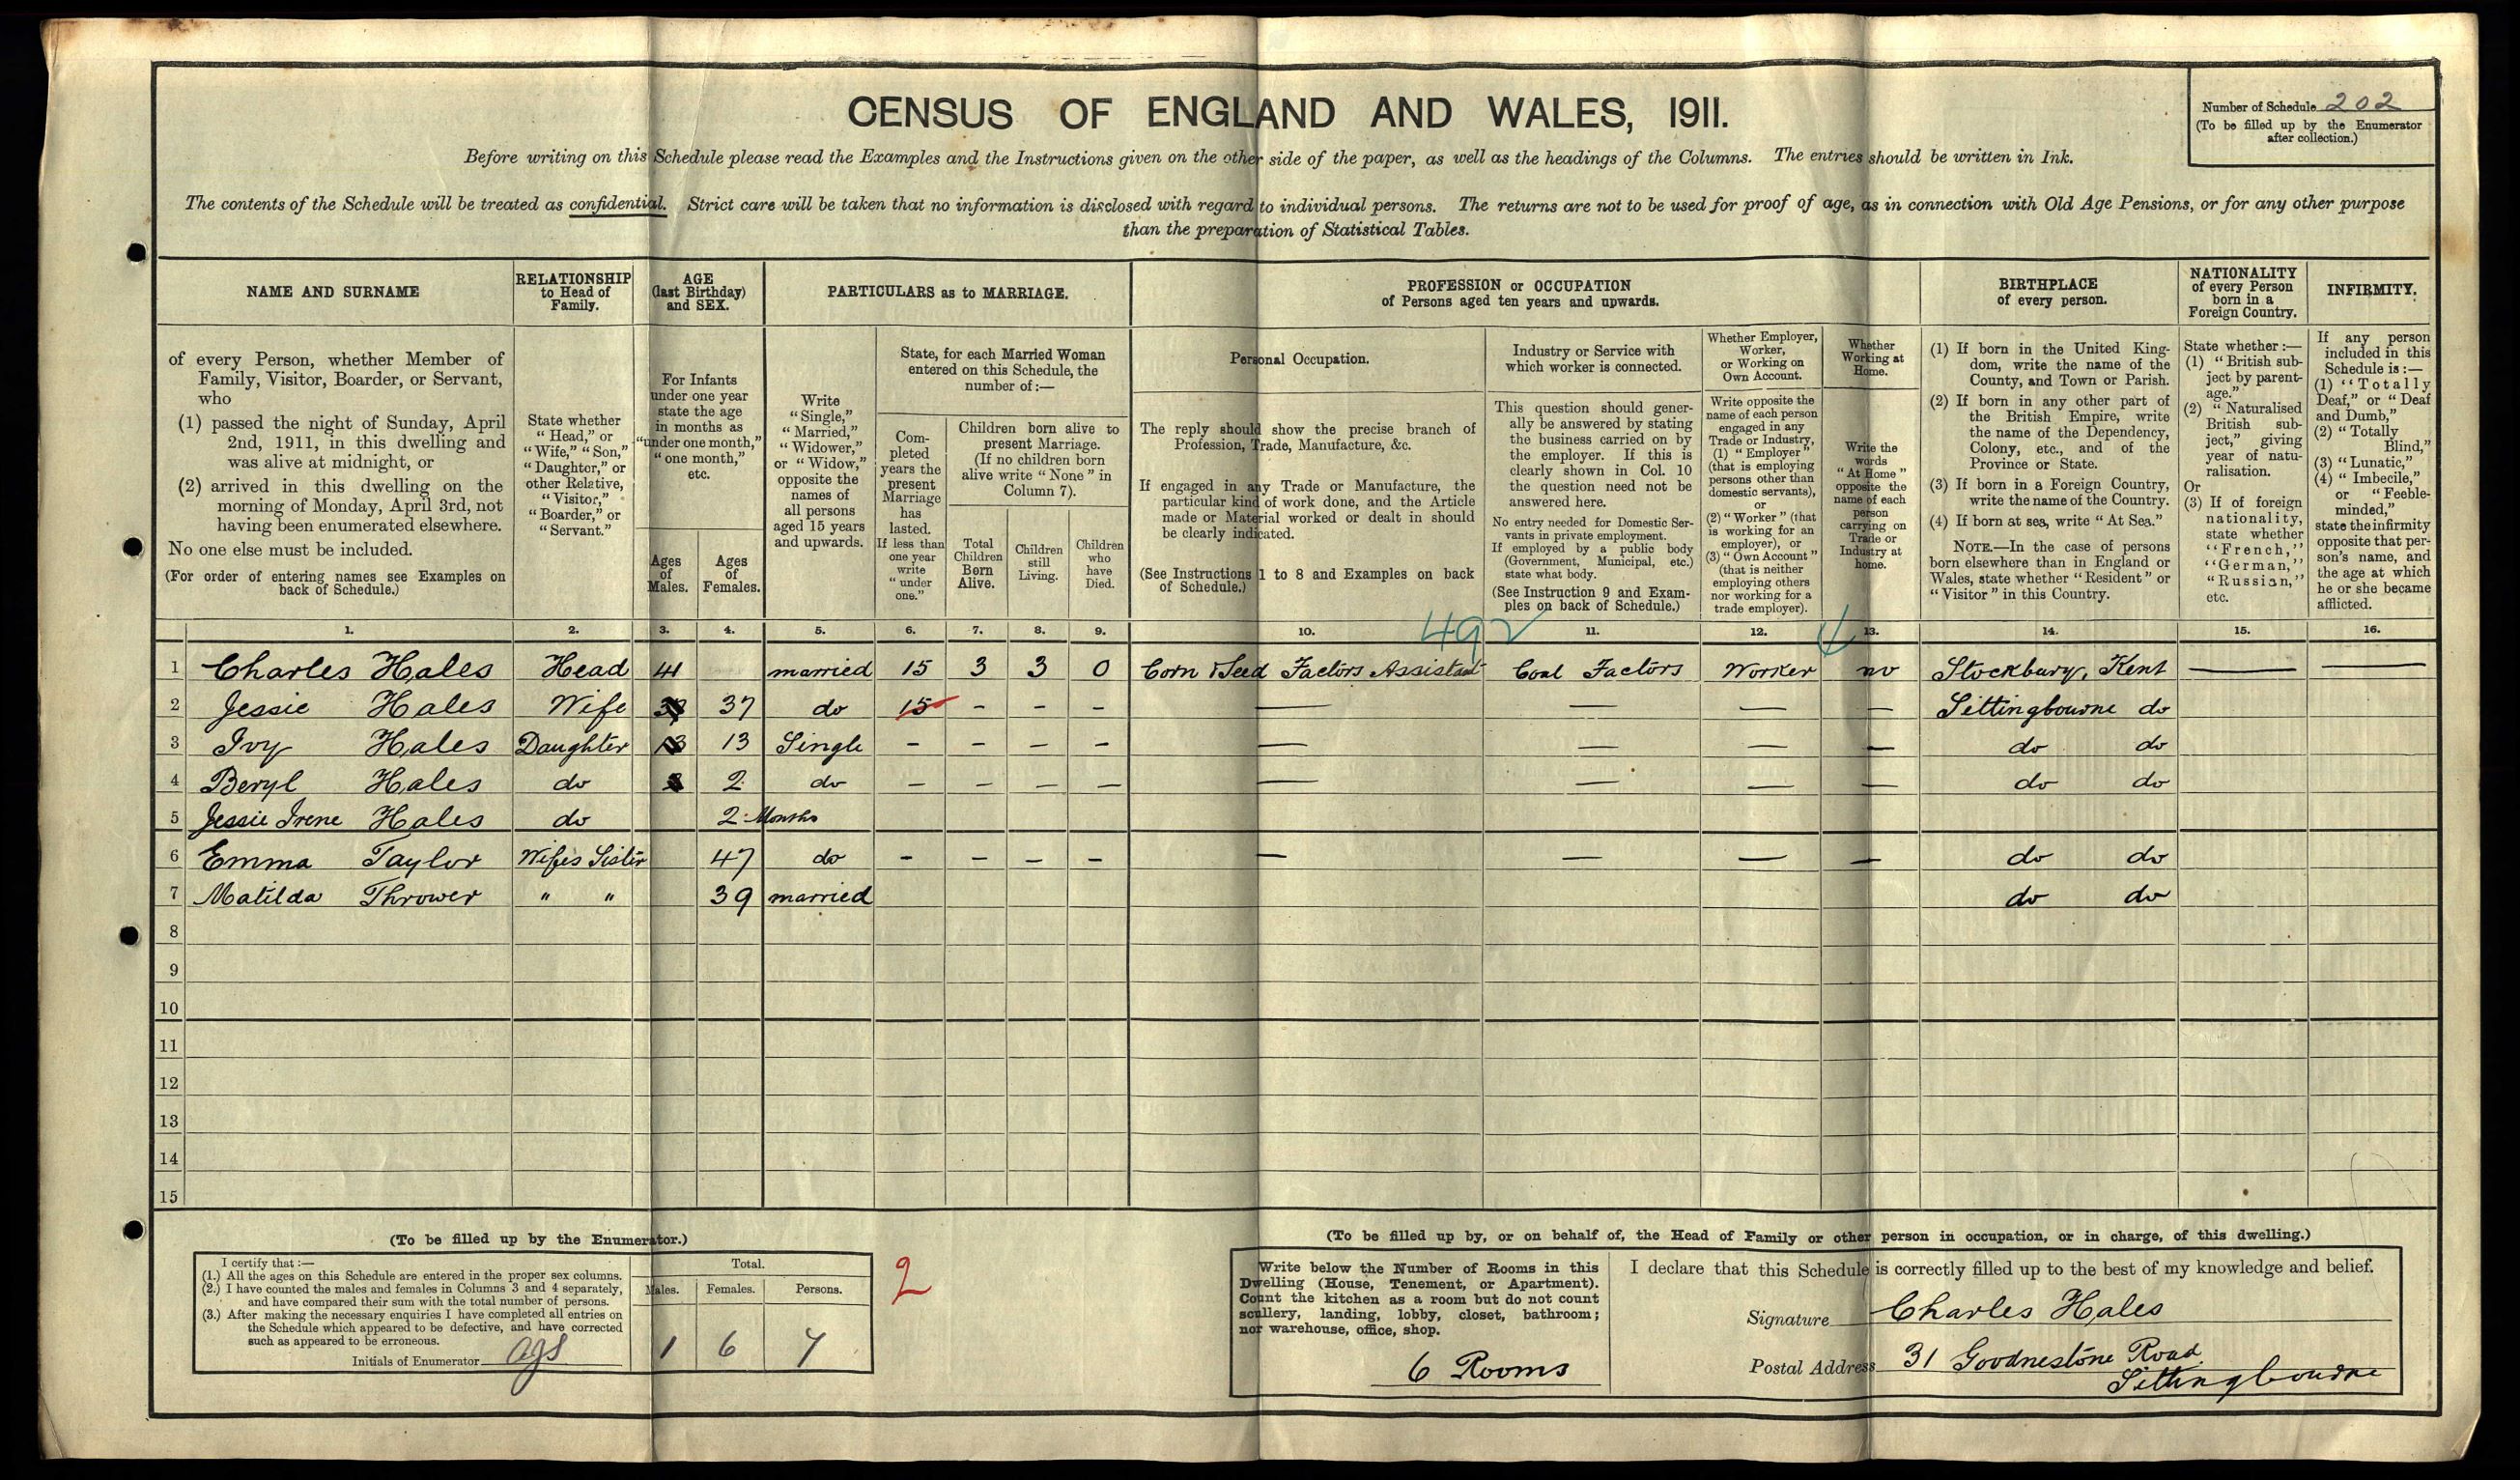 CENSUS OF ENGLAND AND WALES, 1911.
Number of Schedule 202
(To be filled up by the Enumerator
after collection.)
Before writing on this Schedule please read the Examples and the Instructions given on the other side of the paper, as well as the headings of the Columns. The entries should be written in Ink.
The contents of the Schedule will be treated as confidential. Strict care will be taken that no information is disclosed with regard to individual persons. The returns are not to be used for proof of age, as in connection with Old Age Pensions, or for any other purpose
than the preparation of Statistical Tables.
NAME AND SURNAME
of every Person, whether Member of
Family, Visitor, Boarder, or Servant,
who
(1) passed the night of Sunday, April
2nd, 1911, in this dwelling and
was alive at midnight, or
(2) arrived in this dwelling on the
morning of Monday, April 3rd, not
having been enumerated elsewhere.
No one else must be included.
(For order of entering names see Examples on
back of Schedule.)
RELATIONSHIP
to Head of
Family.
State whether
"Head," or
"Wife," "Son,"
"Daughter," or
other Relative,
"Visitor,"
"Boarder," or
"Servant."
AGE
(last Birthday)
and SEX.
For Infants
under one year
state the age
in months as
"under one month,"
"one month,"
etc.
Ages
of
Males.
Ages
of
Females.
PARTICULARS as to MARRIAGE.
Write
"Single,"
"Married,"
"Widower,"
or "Widow,"
opposite the
names of
all persons
aged 15 years
and upwards.
State, for each Married Woman
entered on this Schedule, the
number of:—
Com-
pleted
years the
present
Marriage
has
lasted.
If less than
one year
write
"under
one."
Children born alive to
present Marriage.
(If no children born
alive write "None" in
Column 7).
Total
Children
Born
Alive.
Children
still
Living.
Children
who
have
Died.
PROFESSION or OCCUPATION
of Persons aged ten years and upwards.
Personal Occupation.
The reply should show the precise branch of
Profession, Trade, Manufacture, &c.
If engaged in any Trade or Manufacture, the
particular kind of work done, and the Article
made or Material worked or dealt in should
be clearly indicated.
(See Instructions 1 to 8 and Examples on back
of Schedule.)
Industry or Service with
which worker is connected.
This question should gener-
ally be answered by stating
the business carried on by
the employer. If this is
clearly shown in Col. 10
the question need not be
answered here.
No entry needed for Domestic Ser-
vants in private employment.
If employed by a public body
(Government, Municipal, etc.)
state what body.
(See Instruction 9 and Exam-
ples on back of Schedule.)
Whether Employer,
Worker,
or Working on
Own Account.
Write opposite the
name of each person
engaged in any
Trade or Industry,
(1) "Employer"
(that is employing
persons other than
domestic servants),
or
(2) "Worker" (that
is working for an
employer), or
(3) "Own Account"
(that is neither
employing others
nor working for a
trade employer).
Whether
Working at
Home.
Write the
words
"At Home"
opposite the
name of each
person
carrying on
Trade or
Industry at
home.
BIRTHPLACE
of every person.
(1) If born in the United King-
dom, write the name of the
County, and Town or Parish.
(2) If born in any other part of
the British Empire, write
the name of the Dependency,
Colony, etc., and of the
Province or State.
(3) If born in a Foreign Country,
write the name of the Country.
(4) If born at sea, write "At Sea."
NOTE.—In the case of persons
born elsewhere than in England or
Wales, state whether "Resident" or
"Visitor" in this Country.
NATIONALITY
of every Person
born in a
Foreign Country.
State whether:—
(1) "British sub-
ject by parent-
age."
(2) "Naturalised
British sub-
ject," giving
year of natu-
ralisation.
Or
(3) If of foreign
nationality,
state whether
"French,"
"German,"
"Russian,"
etc.
INFIRMITY.
If any person
included in this
Schedule is:—
(1) "Totally
Deaf," or "Deaf
and Dumb,"
(2) "Totally
Blind,"
(3) "Lunatic,"
(4) "Imbecile,"
or "Feeble-
minded,"
state the infirmity
opposite that per-
son's name, and
the age at which
he or she became
afflicted.
1. 2. 3. 4. 5. 6. 7. 8. 9. 10. 492 11. 12. 13. 14. 15. 16.
1 Charles Hales Head 41 married 15 3 3 0 Corn & Seed Factors Assistant Coal Factors Worker no Stockbury, Kent —— ——
2 Jessie Hales Wife 37 do 15 - - - — — — — Sittingbourne do
3 Ivy Hales Daughter 13 13 Single - - - - — — — — do do
4 Beryl Hales do 2 do - - - - — — — — do do
5 Jessie Irene Hales do 2 Months
6 Emma Taylor Wifes Sister 47 do - - - - — — — — do do
7 Matilda Thrower " " 39 married do do
8
9
10
11
12
13
14
15
(To be filled up by the Enumerator.)
I certify that:—
(1.) All the ages on this Schedule are entered in the proper sex columns.
(2.) I have counted the males and females in Columns 3 and 4 separately,
and have compared their sum with the total number of persons.
(3.) After making the necessary enquiries I have completed all entries on
the Schedule which appeared to be defective, and have corrected
such as appeared to be erroneous.
Initials of Enumerator
Total.
Males. Females. Persons.
1 6 7
2
(To be filled up by, or on behalf of, the Head of Family or other person in occupation, or in charge, of this dwelling.)
Write below the Number of Rooms in this
Dwelling (House, Tenement, or Apartment).
Count the kitchen as a room but do not count
scullery, landing, lobby, closet, bathroom;
nor warehouse, office, shop.
6 Rooms
I declare that this Schedule is correctly filled up to the best of my knowledge and belief.
Signature Charles Hales
Postal Address 31 Goodnestone Road
Sittingbourne